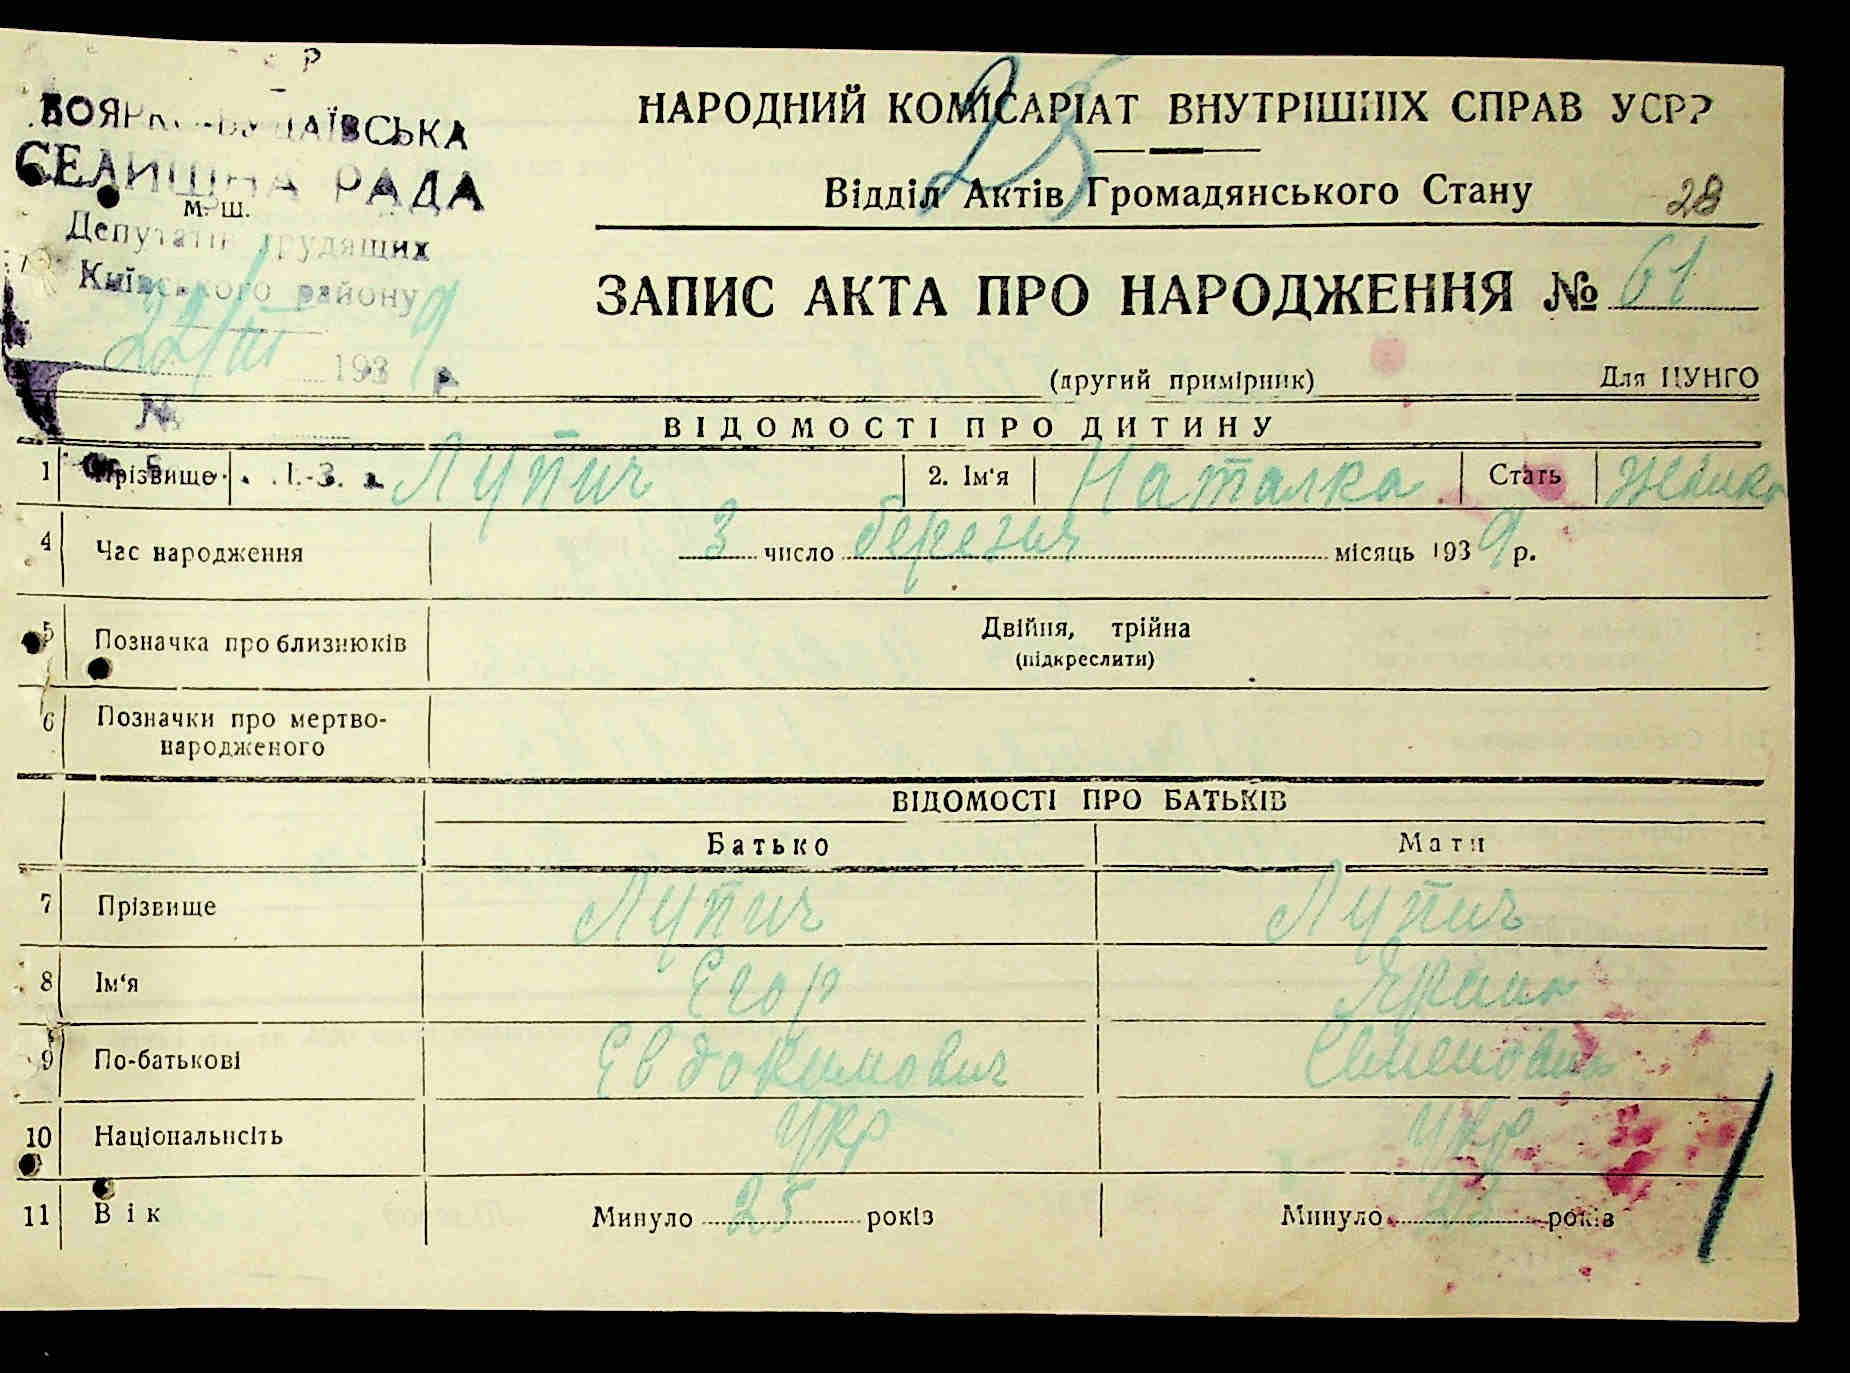 БОЯРКО-БУДАЇВСЬКА
СЕЛИЩНА РАДА
м. ш.
Депутатів трудящих
Київського району
22/III 1939
№
НАРОДНИЙ КОМІСАРІАТ ВНУТРІШНІХ СПРАВ УСРР
25
Відділ Актів Громадянського Стану
28
ЗАПИС АКТА ПРО НАРОДЖЕННЯ № 61
(другий примірник) Для ЦУНГО
ВІДОМОСТІ ПРО ДИТИНУ
1 Прізвище Лупич 2. Ім'я Наталка Стать
4 Час народження 3 число березня місяць 1939 р.
5 Позначка про близнюків Двійня, трійна
(підкреслити)
6 Позначки про мертво-
народженого
ВІДОМОСТІ ПРО БАТЬКІВ
Батько Мати
7 Прізвище Лупич Лупич
8 Ім'я Єгор
9 По-батькові Євдокимович Семеновна
10 Національність укр укр
11 Вік Минуло 25 років Минуло років